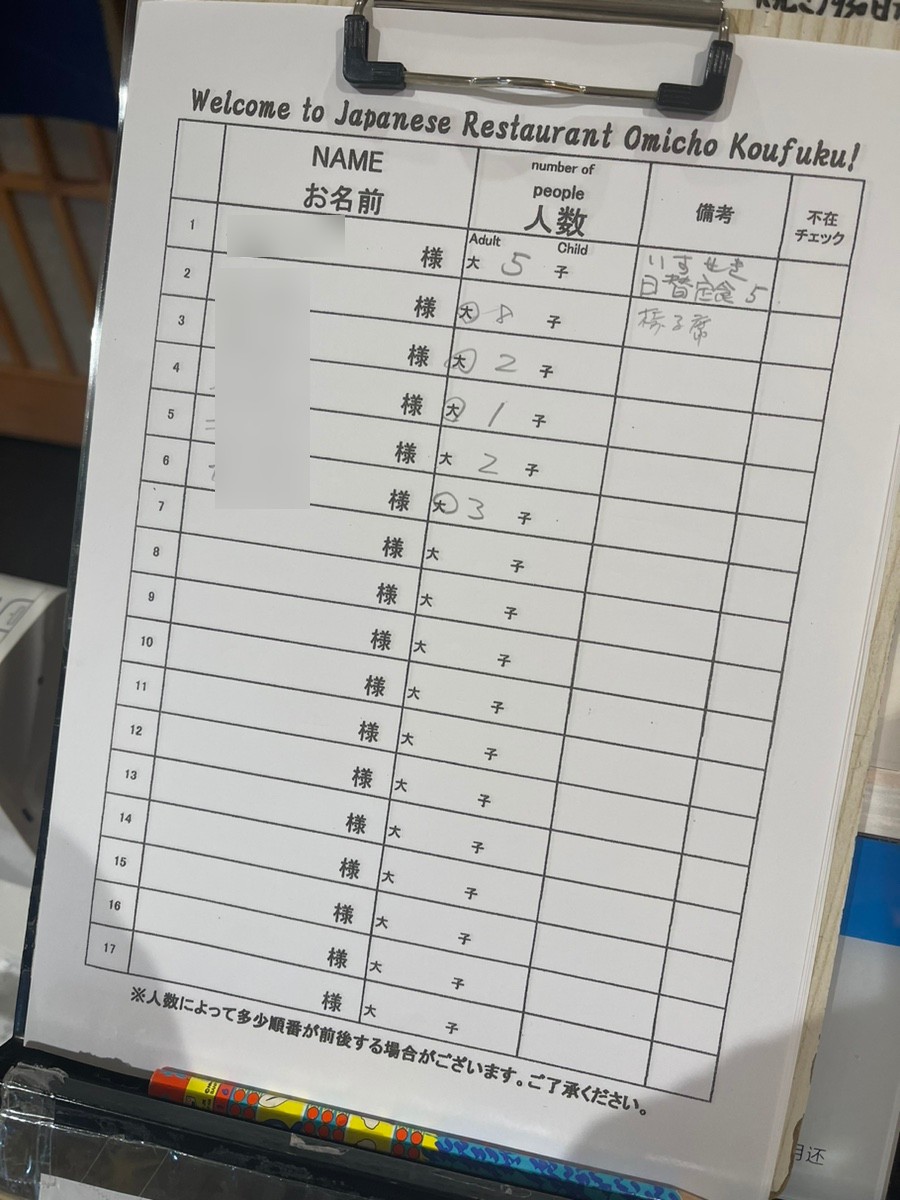 Welcome to Japanese Restaurant Omicho Koufuku!
NAME
お名前
number of
people
人数
備考
不在
チェック
1 様 Adult 大 5 Child 子 いすせき
日替定食 5
2 様 大 8 子 椅子席
3 様 大 2 子
4 様 大 1 子
5 様 大 2 子
6 様 大 3 子
7 様 大 子
8 様 大 子
9 様 大 子
10 様 大 子
11 様 大 子
12 様 大 子
13 様 大 子
14 様 大 子
15 様 大 子
16 様 大 子
17 様 大 子
※人数によって多少順番が前後する場合がございます。ご了承ください。